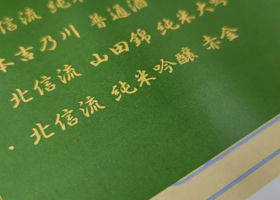 信流 純
古乃川 普通酒
北信流 山田錦 純米大吟
・北信流 純米吟醸 赤金